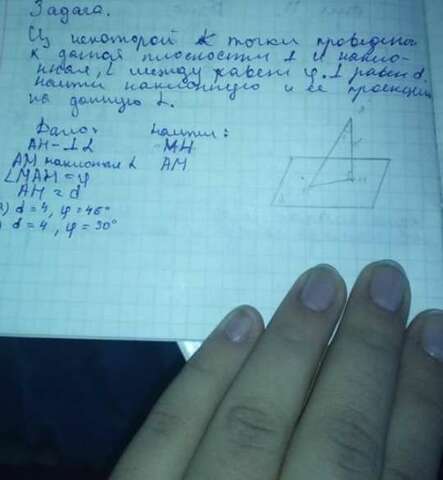 Задача.
Из некоторой точки проведены
к данной плоскости ⊥ и накло-
нная, ∠ между равен φ. ⊥ равен d.
найти наклонную и её проекцию
на данную α.
Дано:
AH - ⊥ α
AM наклонная α
∠MAH = φ
AH = d
) d = 4, φ = 45°
) d = 4, φ = 30°
Найти:
MH
AM